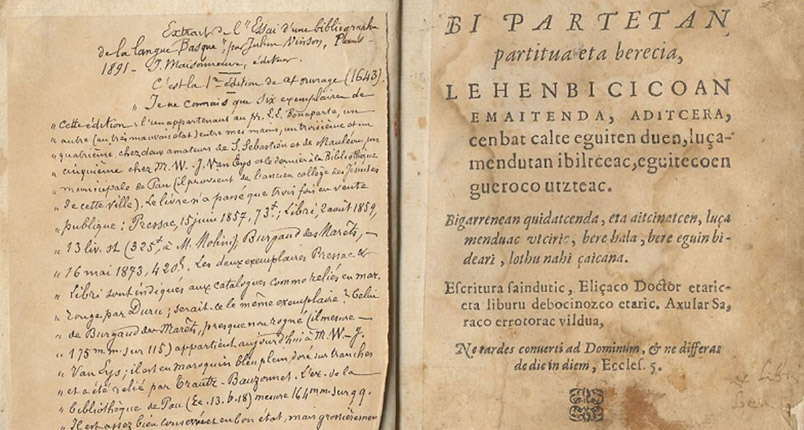 Extrait de l'"Essai d'une bibliographie
de la langue Basque", par Julien Vinson, Paris
1891 - J. Maisonneuve, éditeur.
C'est la 1re édition de cet ouvrage (1643).
" Je ne connais que six exemplaires de
" cette édition: l'un appartenant au pr. L.L. Bonaparte, un
" autre (en très mauvais état) entre mes mains, un troisième et un
" quatrième chez deux amateurs de St. Sébastien et de Mauléon, un
" cinquième chez M. W. J. Van Eys et le dernier à la Bibliothèque
" municipale de Pau (il provient de l'ancien collège des Jésuites
" de cette ville). Le livre n'a passé que trois fois en vente
" publique: Pressac, 15 juin 1857, 73f; Libri, 2 août 1859,
" 13 liv. st (325f, à M. Burgaud des Marêts, -
" 16 mai 1873, 420f. Les deux exemplaires Pressac &
" Libri sont indiqués aux catalogues comme reliés en mar.
" rouge par Duru; serait-ce le même exemplaire? Celui
" de Burgaud des Marêts, presque non rogné (il mesure -
" 175 mm. sur 115) appartient aujourd'hui à M. W. J.
" Van Eys; il est en maroquin bleu plein, doré sur tranches
" et a été relié par Trautz-Bauzonnet. L'ex. de la
" bibliothèque de Pau (Ee. 13. b. 18) mesure 164 mm. sur 99.
" Il est assez bien conservé et en bon état, mais grossièrement
BI PARTETAN
partitua eta berecia,
LEHENBICICOAN
EMAITENDA, ADITCERA,
cenbat calte eguiten duen, luça-
mendutan ibiltceac, eguitecoen
gueroco utzteac.
Bigarrenean quidatcenda, eta aitcinatcen, luça
menduac vtciric, bere hala, bere eguin bi-
deari, lothu nahi çaicana.
Escritura saindutic, Eliçaco Doctor etaric-
eta liburu debocinozco etaric. Axular Sa,
raco errotorac vildua,
Ne tardes conuerti ad Dominum, & ne differas
de die in diem, Eccles. 5.